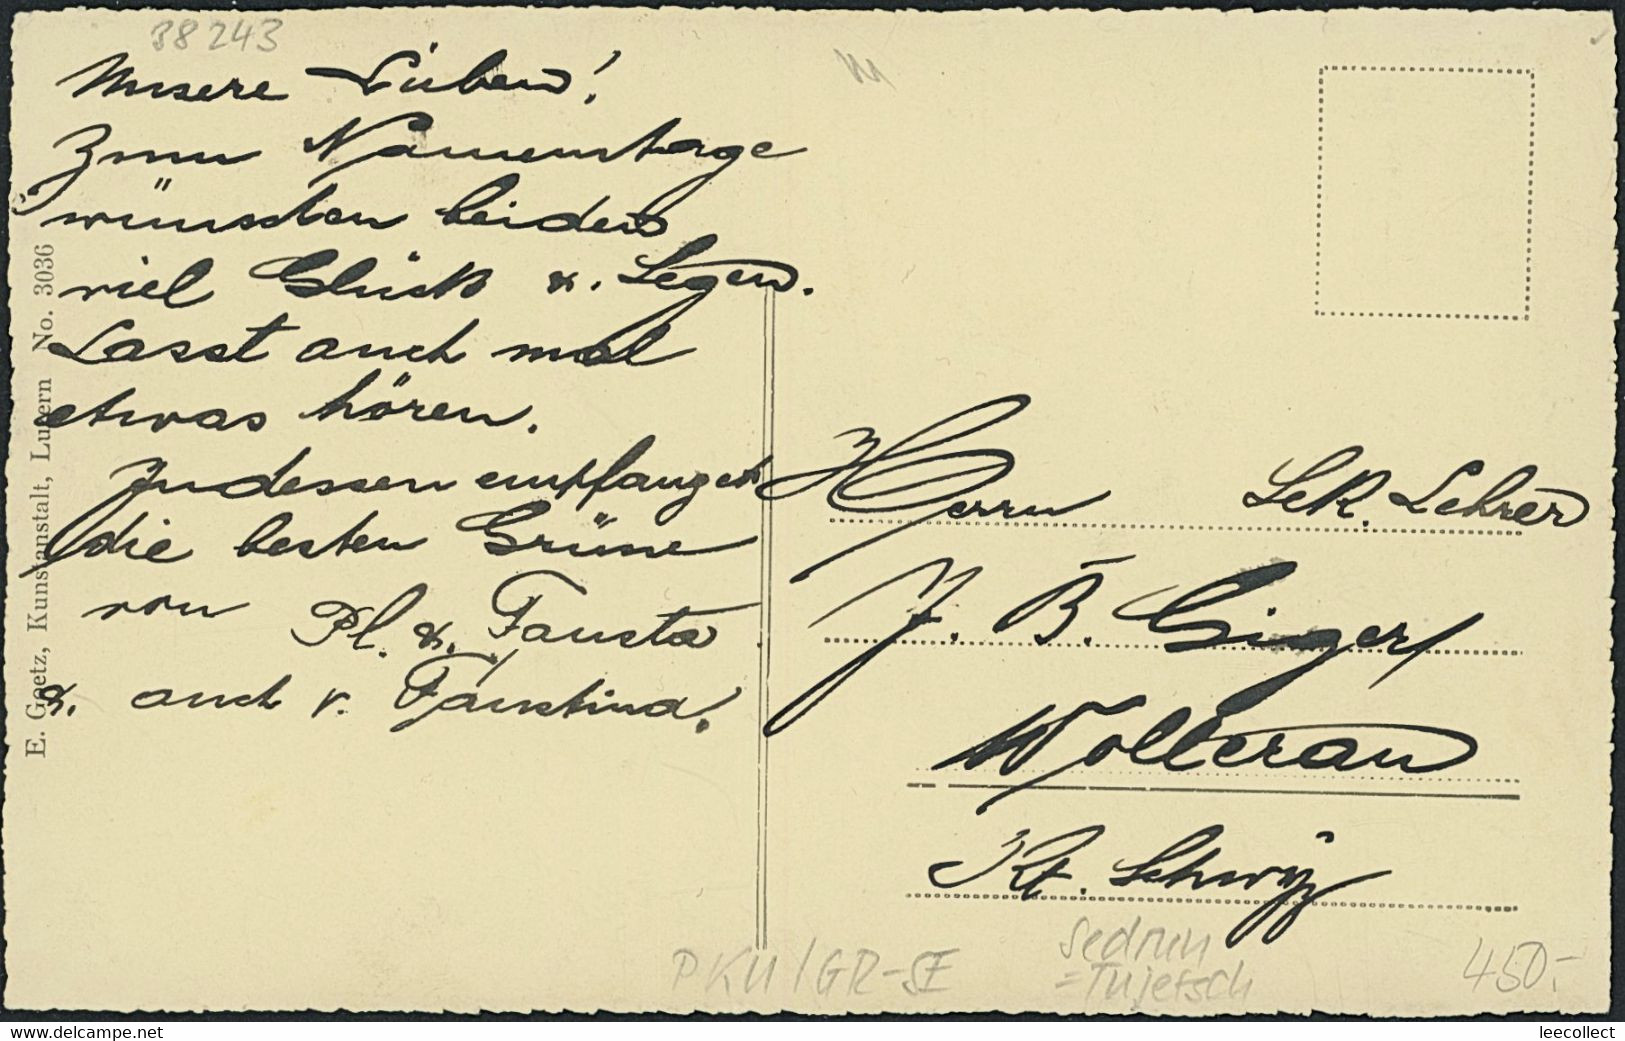 38243
Unsere Lieben!
Zum Namenstage
wünschen beiden
viel Glück u. Segen.
Lasst auch mal
etwas hören.
Indessen empfanget
die besten Grüsse
von Pl. & Fausta
u. auch v. Faustina.
E. Goetz, Kunstanstalt, Luzern No. 3036
Herrn Sek. Lehrer
J. B. Ginger
Wollerau
Kt. Schwyz
PKU/GR-SE
Sedrun
=Tujetsch
450.-
www.delcampe.net
leecollect